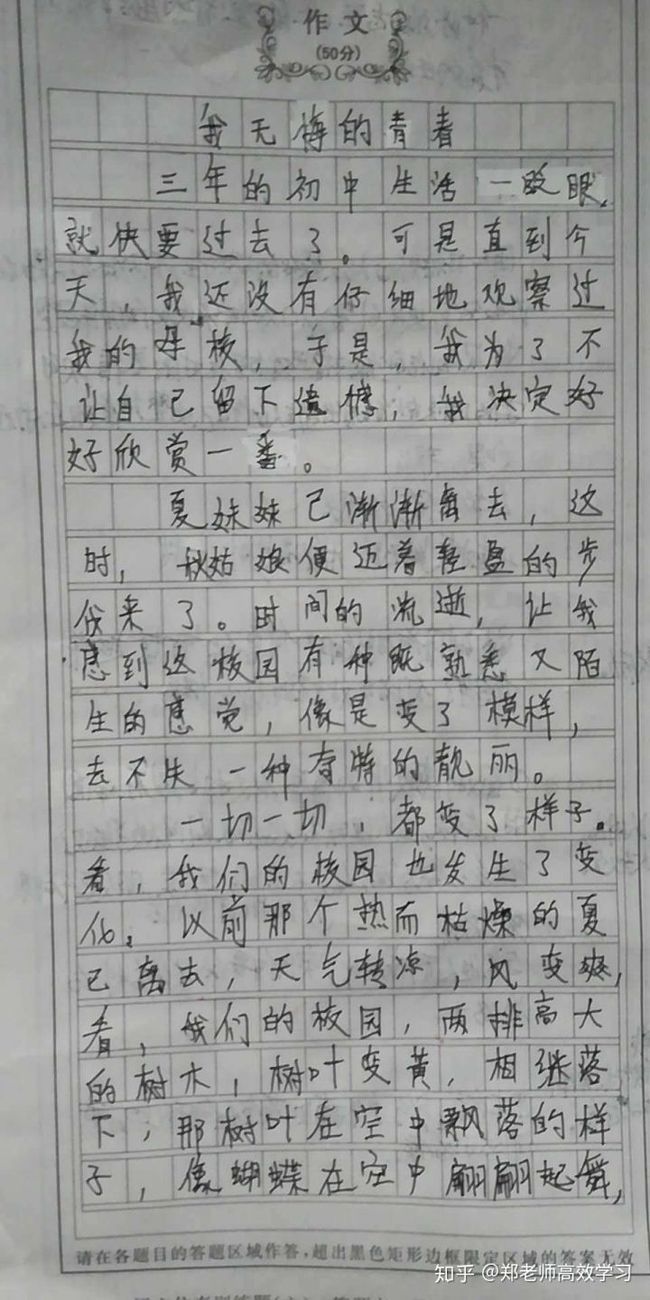 作文
(50分)
我无悔的青春
三年的初中生活一眨眼,
就快要过去了。可是直到今
天,我还没有仔细地观察过
我的母校,于是,我为了不
让自己留下遗憾,我决定好
好欣赏一番。
夏妹妹已渐渐离去,这
时,秋姑娘便迈着轻盈的步
伐来了。时间的流逝,让我
感到这校园有种既熟悉又陌
生的感觉,像是变了模样,
去不失一种奇特的靓丽。
一切一切,都变了样子。
看,我们的校园也发生了变
化。以前那个热而枯燥的夏
已离去,天气转凉,风变爽,
看,我们的校园,两排高大
的树木,树叶变黄,相继落
下,那树叶在空中飘落的样
子,像蝴蝶在空中翩翩起舞,
请在各题目的答题区域作答,超出黑色矩形边框限定区域的答案无效
知乎 @郑老师高效学习